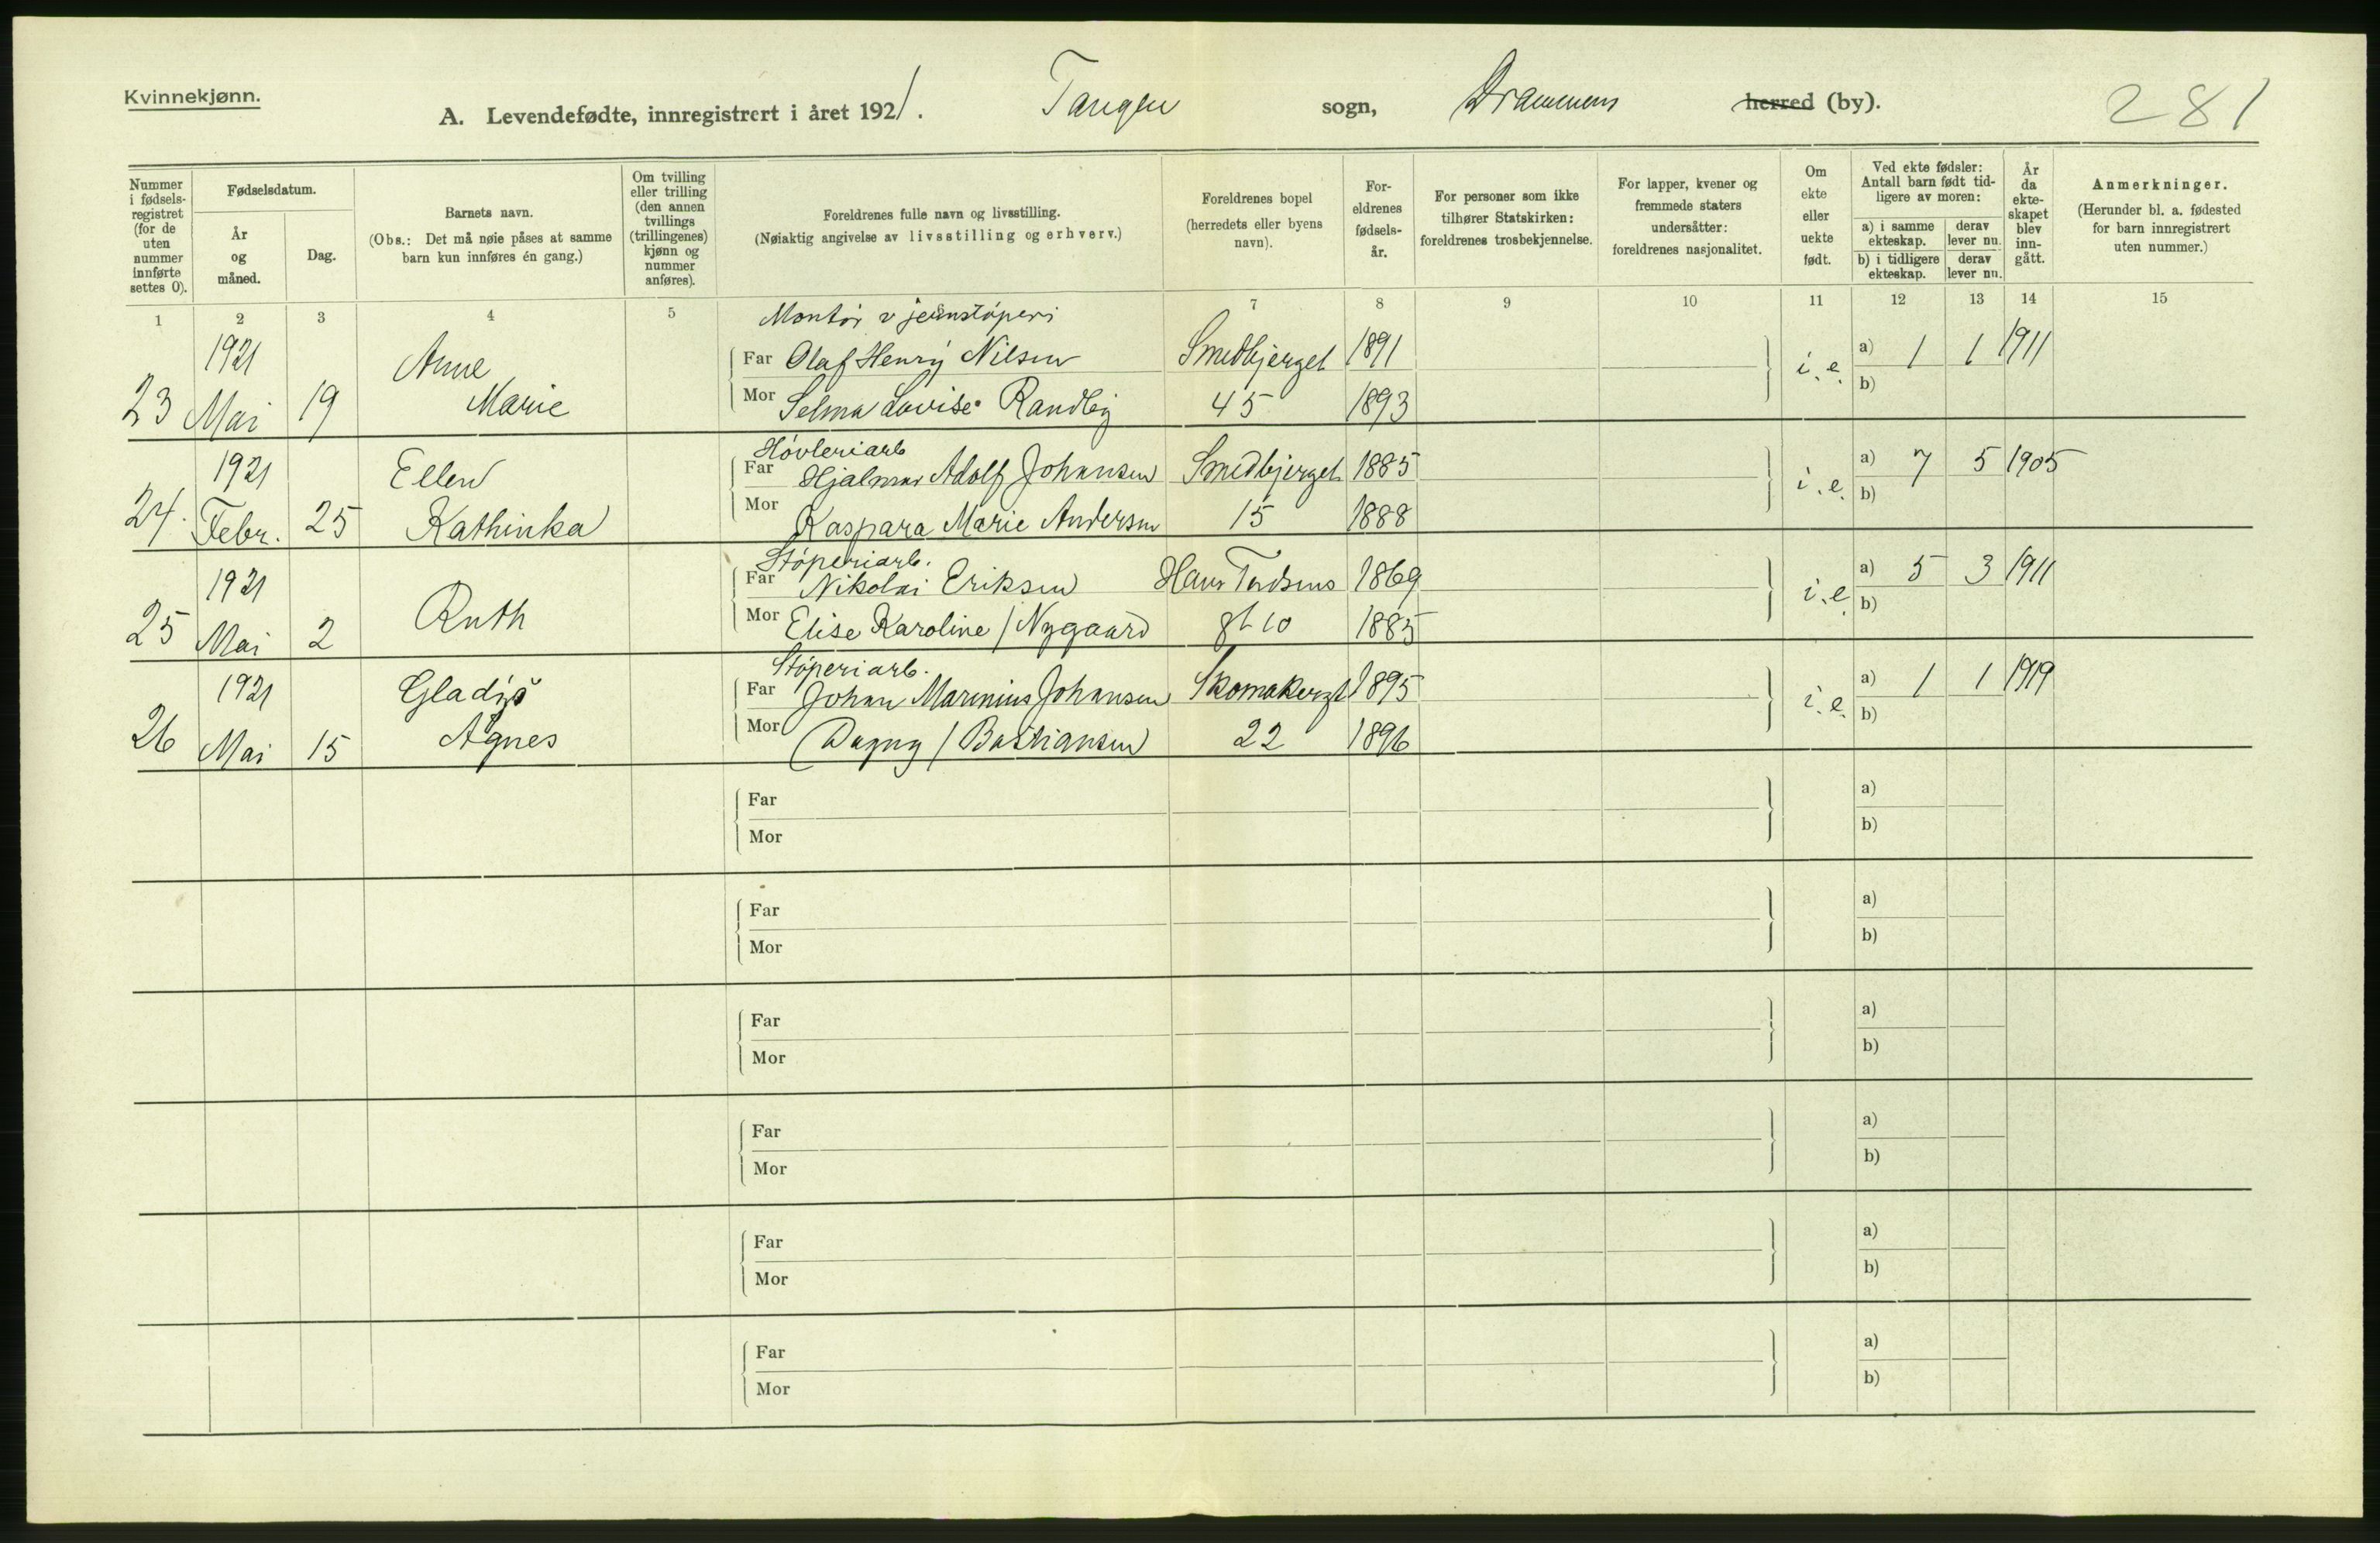 Kvinnekjønn.
A. Levendefødte, innregistrert i året 1921. Tangen sogn, Drammens herred (by). 281
Nummer i fødsels-registret (for de uten nummer innførte settes 0).
Fødselsdatum.
År og måned.
Dag.
Barnets navn.
(Obs.: Det må nøie påses at samme barn kun innføres én gang.)
Om tvilling eller trilling (den annen tvillings (trillingenes) kjønn og nummer anføres).
Foreldrenes fulle navn og livsstilling.
(Nøiaktig angivelse av livsstilling og erhverv.)
Foreldrenes bopel (herredets eller byens navn).
For-eldrenes fødsels-år.
For personer som ikke tilhører Statskirken: foreldrenes trosbekjennelse.
For lapper, kvener og fremmede staters undersåtter: foreldrenes nasjonalitet.
Om ekte eller uekte født.
Ved ekte fødsler: Antall barn født tid-ligere av moren:
a) i samme ekteskap. derav lever nu.
b) i tidligere ekteskap. derav lever nu.
År da ekte-skapet blev inn-gått.
Anmerkninger.
(Herunder bl. a. fødested for barn innregistrert uten nummer.)
1 2 3 4 5 7 8 9 10 11 12 13 14 15
Montör v jernstöperi
1921 Anne Far Olaf Henry Nilsen Smedbjerget 1891 i. e. a) 1 1 1911
23 Mai 19 Marie Mor Selma Lovise Randby 45 1893 b)
Hövleriarb
1921 Ellen Far Hjalmar Adolf Johansen Smedbjerget 1885 i. e. a) 7 5 1905
24. Febr. 25 Kathinka Mor Kaspara Marie Andersen 15 1888 b)
Stöperiarb.
1921 Ruth Far Nikolai Eriksen Hans 1869 i. e. a) 5 3 1911
25 Mai 2 Mor Elise Karoline / Nygaard gt 10 1885 b)
Stöperiarb.
1921 Gladys Far Johan Marinius Johansen Skomakergt 1895 i. e. a) 1 1 1919
26 Mai 15 Agnes Mor Dagny / Bastiansen 22 1896 b)
Far a)
Mor b)
Far a)
Mor b)
Far a)
Mor b)
Far a)
Mor b)
Far a)
Mor b)
Far a)
Mor b)